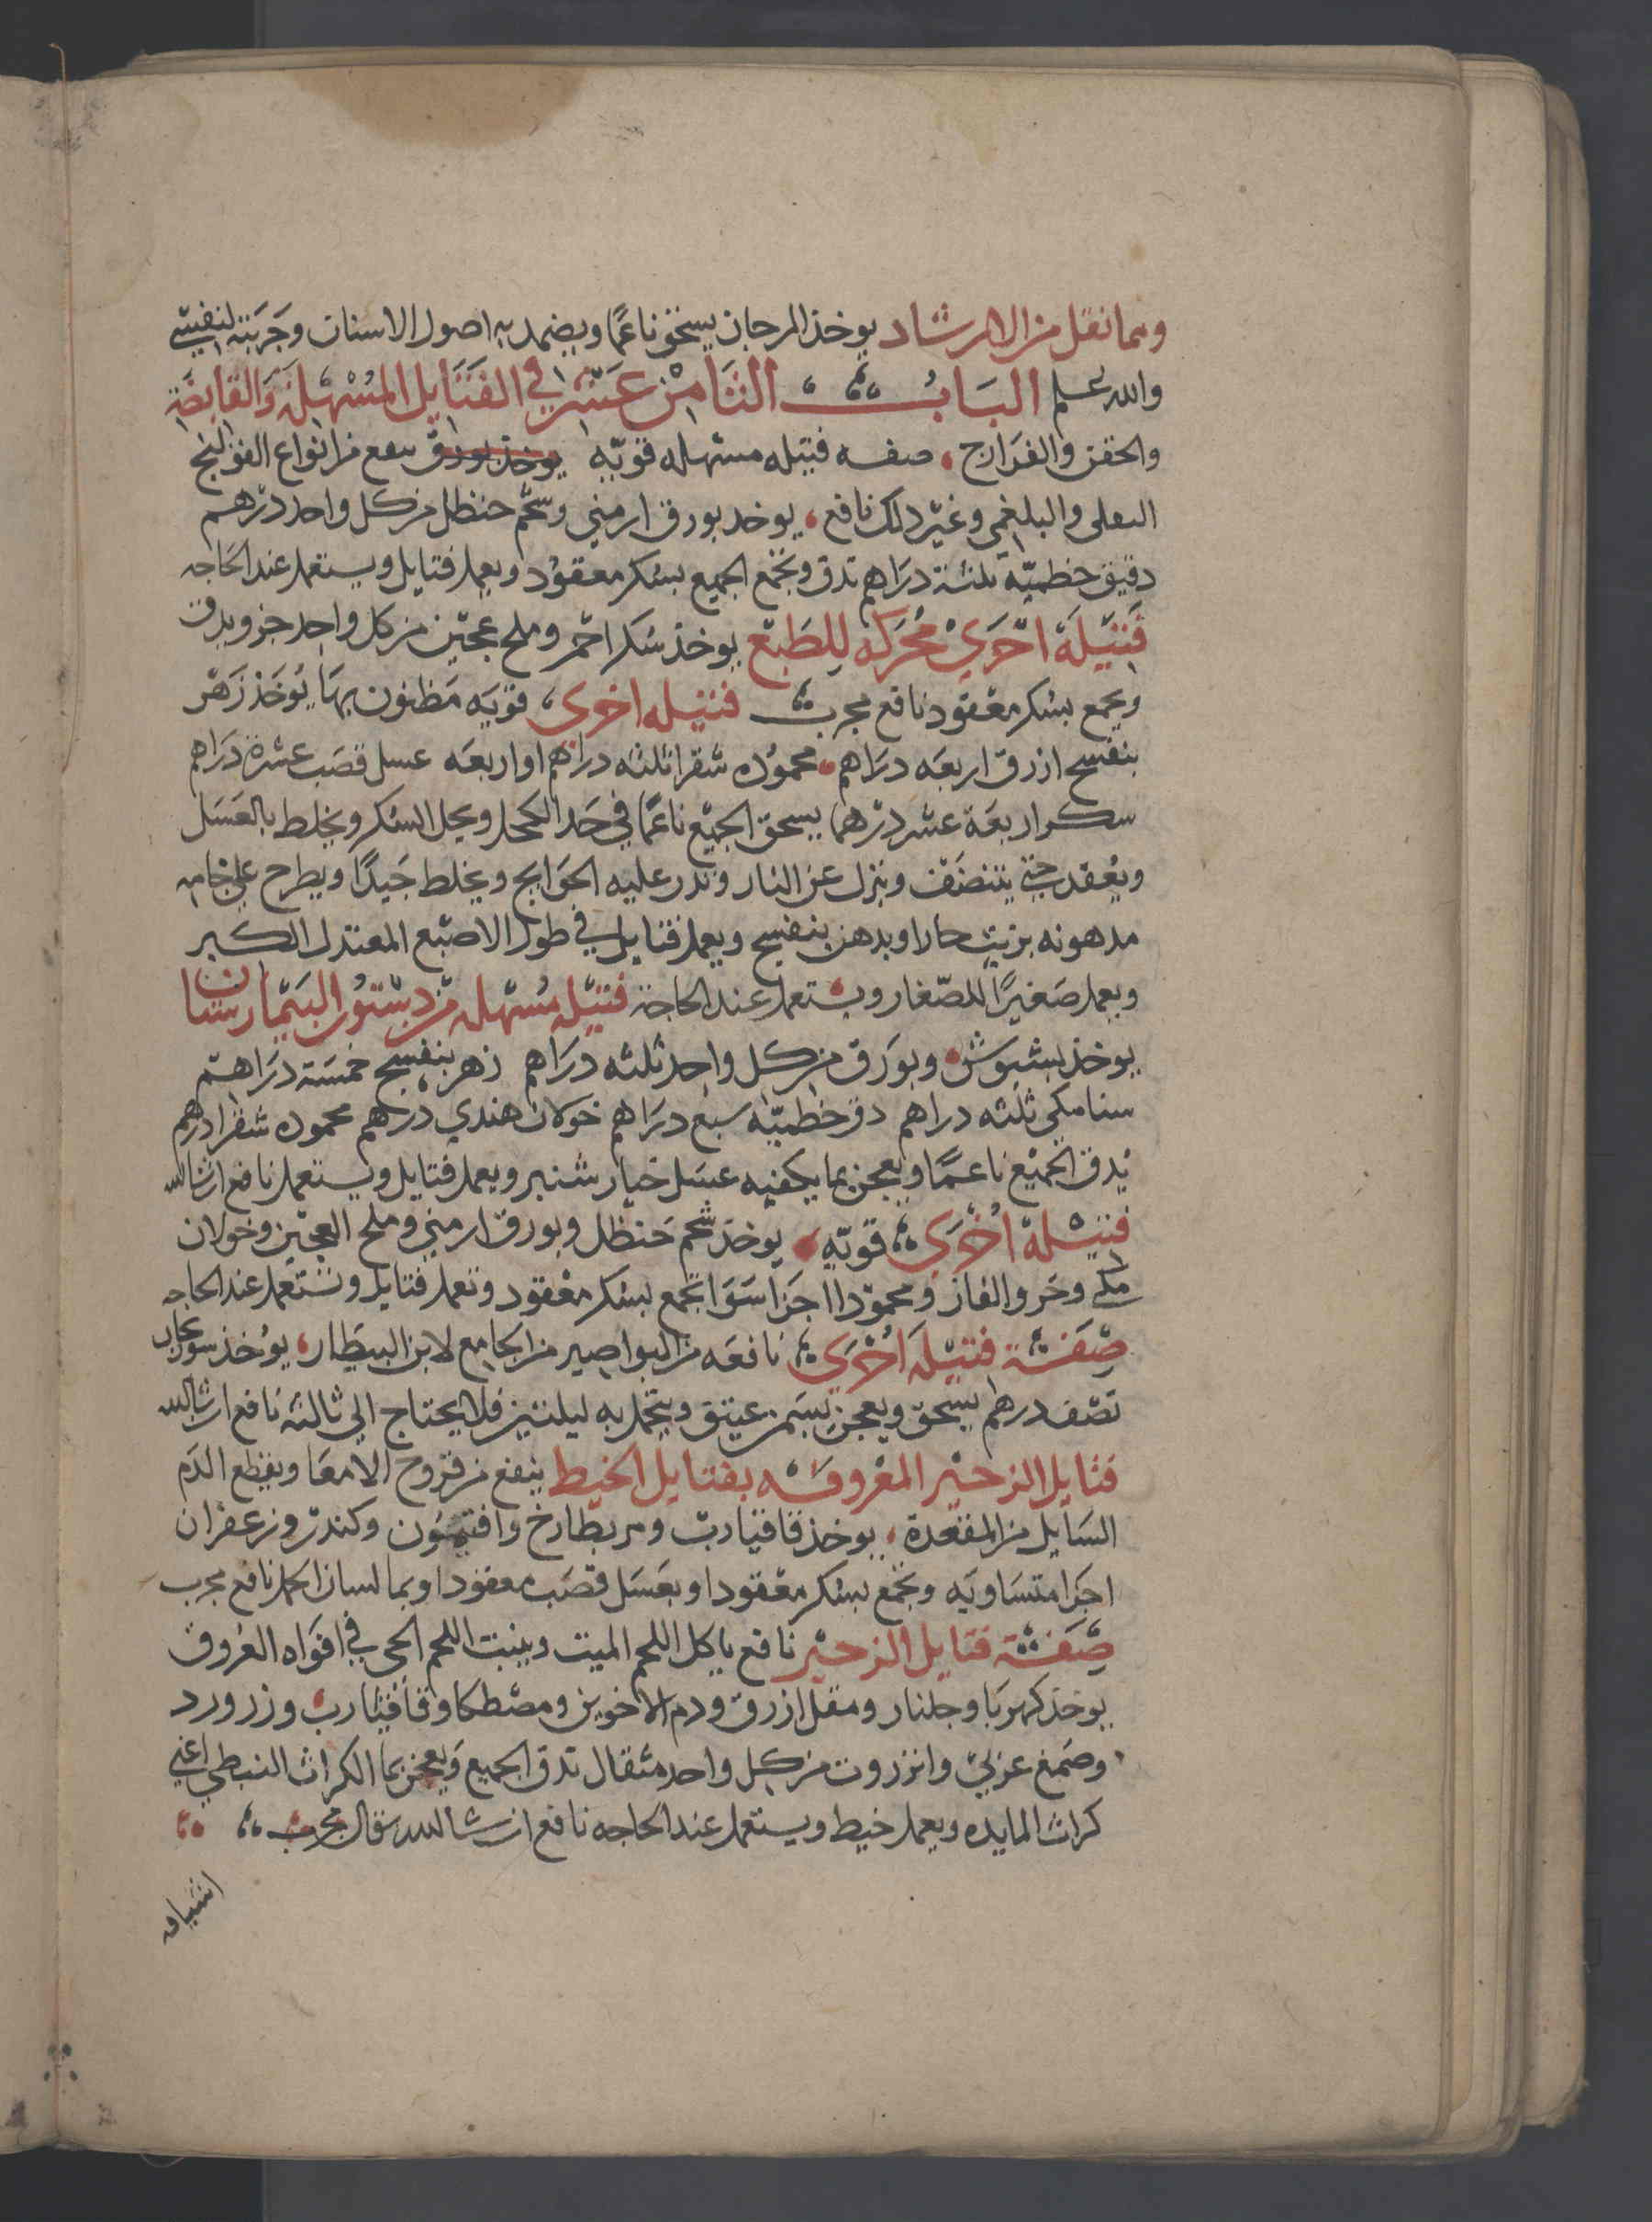 ومما نقل من الارشاد يوخذ المرجان يسحق ناعمًا ويضمد به اصول الاسنان وجربته لنفسي
والله اعلم البَابُ الثامن عشر في الفتايل المُسْهلة والقابضة
والحقن والفرازج صفه فتيله مسهله قويّه يوخذ بورق ينفع من انواع القولنج
الثفلى والبلغمي وغير ذلك نافع يوخد بورق ارمني وشحم حنظل من كل واحد درهم
دقيق خطميّه ثلثة دراهم تدق وتجمع الجميع بسكر معقود ويعمل فتايل ويستعمل عند الحاجه
فتيلة اخرى محركه للطبع يوخذ سكر احمر وملح عجين من كل واحد جزو يدق
ويجمع بسكر معقود نافع مجرب فتيله اخرى قويه مظنون بها يُوخذ زهر
بنفسج ازرق اربعه دراهم محموده شقرا ثلثه دراهم او اربعه عسل قصب عشرة دراهم
سكر اربعة عشر درهما يسحق الجميع ناعمًا في حد الكحل ويحل السكر ويخلط بالعسل
ويعقد حتى يتنضف وينزل عن النار وتذر عليه الحوايج ويخلط جيدًا ويطرح على خامه
مدهونه بزيت حار او بدهن بنفسج ويعمل فتايل في طول الاصبع المعتدل الكبير
ويعمل صغيرًا للصغار ويستعمل عند الحاجة فتيله مُسهله من دستور البيمارستان
يوخذ بشبوش وبورق من كل واحد ثلثه دراهم زهر بنفسج خمسة دراهم
سنا مكى ثلثه دراهم دق خطميّه سبع دراهم خولان هندي درهم محموده شقرا درهم
يُدق الجميع ناعمًا ويعجن بما يكفيه عسل خيار شنبر ويعمل فتايل ويستعمل نافع ان شا الله
فتيلة اُخرى قويّه يوخذ شحم حنظل وبورق ارمني وملح العجين وخولان
مكى وخر والفار ومحموده اجزا سوا تجمع بسكر معقود وتعمل فتايل وتستعمل عند الحاجه
صفة فتيلة اُخرى نافعه من البواصير من الجامع لابن البيطار يُوخذ سورنجان
نصف درهم يسحق ويعجن بسمن عتيق ويتحمل به ليلتين فلا يحتاج الي ثالثه نافع ان شا الله
فتايل الزحير المعروفه بفتايل الخيط ينفع من قروح الامعا ويقطع الدم
السايل من المقعدة يوخذ قاقيا رب ومر بطارخ وافيون وكندر وزعفران
اجزا متساويه وتجمع بسكر معقود او بعسل قصب معقود او بما لسان الحمل نافع مجرب
صفة فتايل الزحير نافع ياكل اللحم الميت وينبت اللحم الحى في افواه العُروق
يوخذ كهربا وجلنار ومقل ازرق ودم الاخوين ومصطكا وقاقيا رب وزر ورد
وصمغ عربي وانزروت من كل واحد مثقال تدق الجميع ويعجن بما الكراث النبطي اعني
كراث المايده ويعمل خيط ويستعمل عند الحاجه نافع ان شا الله تعالى مجرب
اشيافه